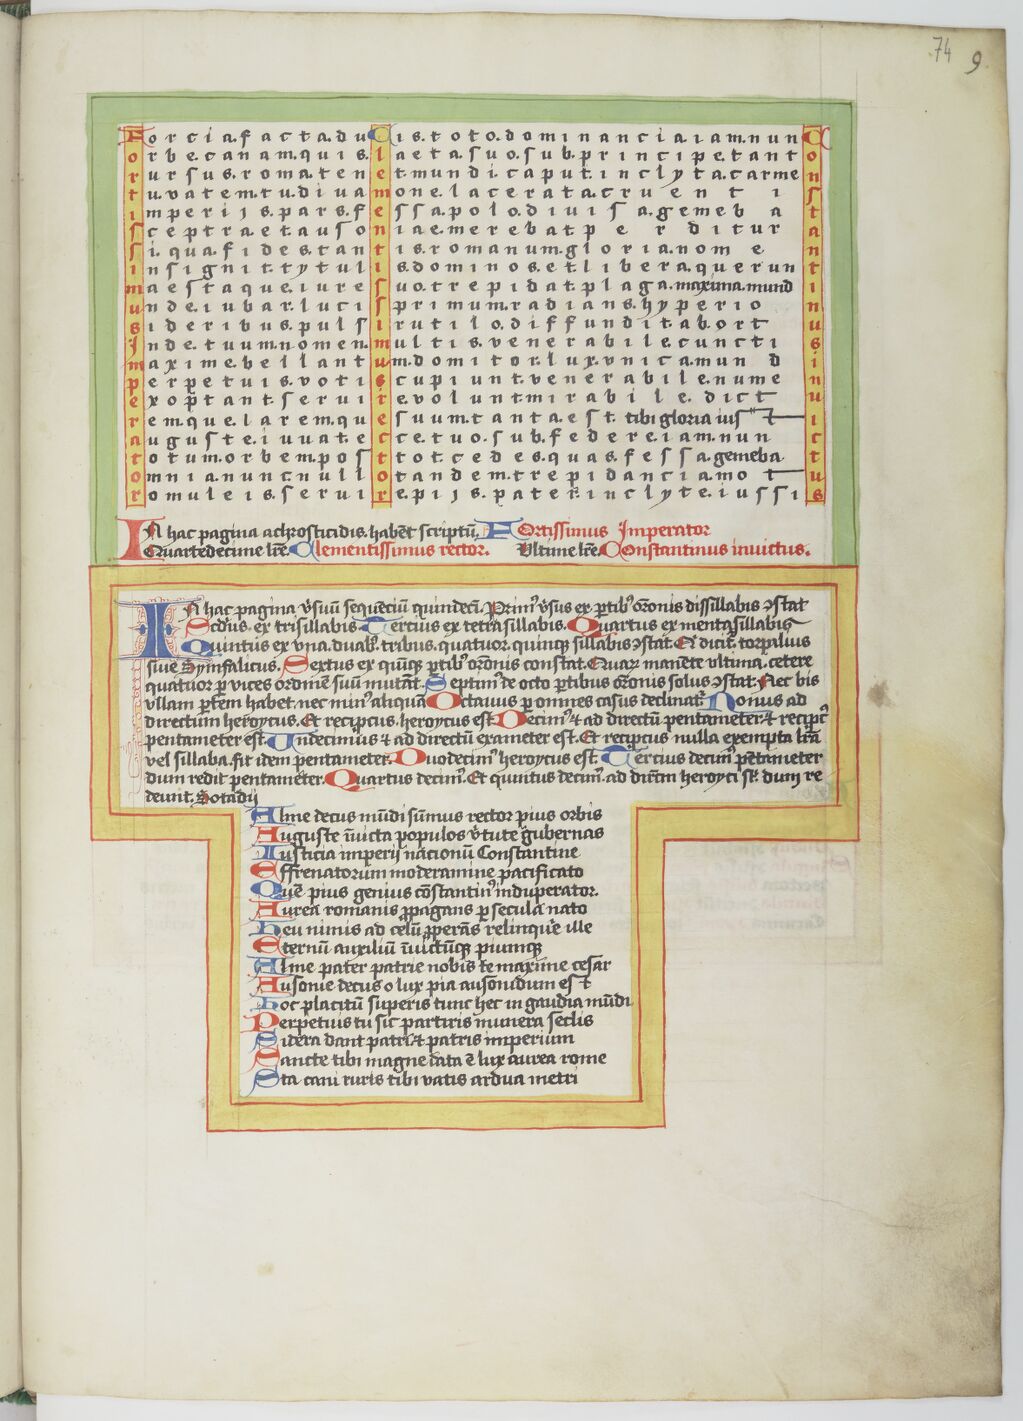 74 9
Forcia.facta.duCis.toto.dominancia.iam.nunC
orbe.canam.quis.laeta.suo.sub.principe.tanto
ursus.roma.tenet.mundi.caput.inclyta.carmen
tu.vatem.tu.diuamone.lacerata.cruentis
imperijs.pars.fessa.polo.diuisa.gemebat
sceptraetausoniae.merebatperditura
si.qua.fidestantis.romanum.glorianomen
insignit.tytulis.dominos.et.libera.querunt
maestaque.iuresuo.trepidat.plaga.maxima.mundi
unde.iubar.luciSprimum.radians.hyperion
sideribus.pulsirutilo.diffundit.ab.ortu
Inde.tuum.nomen.multis.venerabile.cunctis
maxime.bellantum.domitor.lux.vnica.mundi
perpetuis.votiscupiunt.venerabile.numen
exoptant.seruirevolunt.mirabile.dictu
remque.laremquesuum.tanta.est tibi gloria iusti
auguste.iuuat.ecce.tuo.sub.federe.iam.nunc
totum.orbem.postot.cedes.quas.fessa.gemebat
omnia.nunc.nullotandem.trepidancia.motu
romuleis.seruire.pijs.pater.inclyte.iussis
IN hac pagina achrosticidis. habēt scriptū. Fortissimus Imperator
Quartedecime lrē. Clementissimus rector. Vltime lrē. Constantinus inuictus.
IN hac pagina v̄suū sequēciū quindecī. Primꝰ v̄sus ex ꝑtibꝰ ōronis dissillabis ꝯstat
Scd̄us. ex trisillabis. Tercius ex tetrasillabis. Quartus ex mentasillabis
Quintus ex vna. duabꝰ. tribus. quatuor. quinqꝫ sillabis ꝯstat. Et dicit̄. torpalius
siue Symfalicus. Sextus ex quīqꝫ ꝑtibꝰ ōrōnis constat. Quaꝝ manēte vltima. cetere
quatuor ꝑ vices ordinē suū mutāt. Septimꝰ de octo ꝑtibus ōronis solus ꝯstat. Nec bis
vllam ꝑtem habet. nec minꝰ aliquā Octauus ꝑ omnes casus declinat̄. Nonus ad
directum heroycus. Et reciprcus. heroycus est. Decimꝰ ⁊ ad directū pentameter. ⁊ recipꝰc
pentameter est. Vndecimus ⁊ ad directū exameter est. Et reciprcus nulla exempta lrā
vel sillaba. fit idem pentameter. Duodecimꝰ heroycus est. Tercius decimꝰ pētameter
dum redit pentameter. Quartus decimꝰ. Et quintus decimꝰ. ad dirctm heroyci sꝫ dum re
deunt. Sotadij
Alme decus mūdi sūmus rector pius orbis
Auguste īnuicta populos v̄tute gubernas
Iusticia imperij nacionū Constantine
Effrenatorum moderamine pacificato
Quē pius genius cōstantinꝰ induperator.
Aurea romanis ꝓpagans ꝑ secula nato
Heu nimis ad celū ꝓperās relinquꝰe ille
Eternū auxiliū īnuictūqꝫ piumqꝫ
Alme pater patrie nobis te maxime cesar
Ausonie decus o lux pia ausonidum est
Hoc placitū superis tunc hec in gaudia mūdi
Perpetuis tu sic partiris munera seclis
Sidera dant patri ⁊ patris imperium
Sancte tibi magne data ē lux aurea rome
Sta cani ruris tibi vatis ardua metri